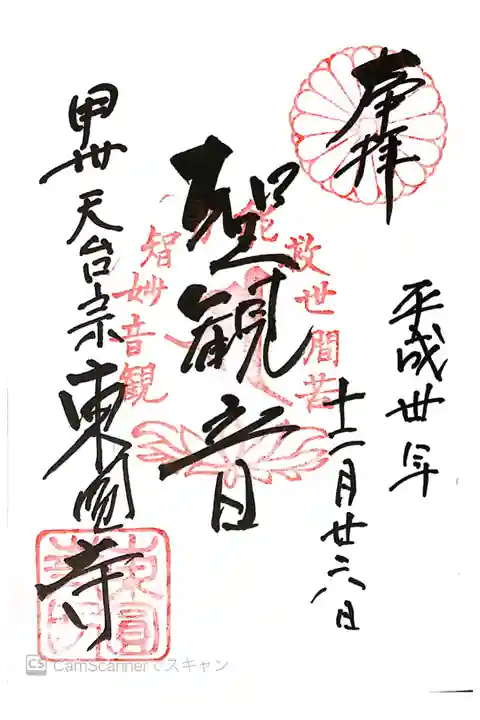 奉拝
平成卅年
十二月廿六日
聖観音
観音妙智
能救世間苦
甲州天台宗東圓寺
東圓
CS CamScannerでスキャン